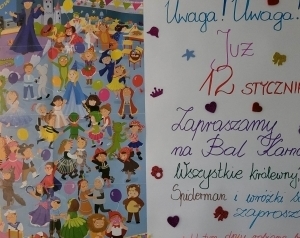 Uwaga! Uwaga!
Już
12 STYCZNIA
Zapraszamy
na Bal
Wszystkie królewny
Spiderman i wróżki
zaprosz